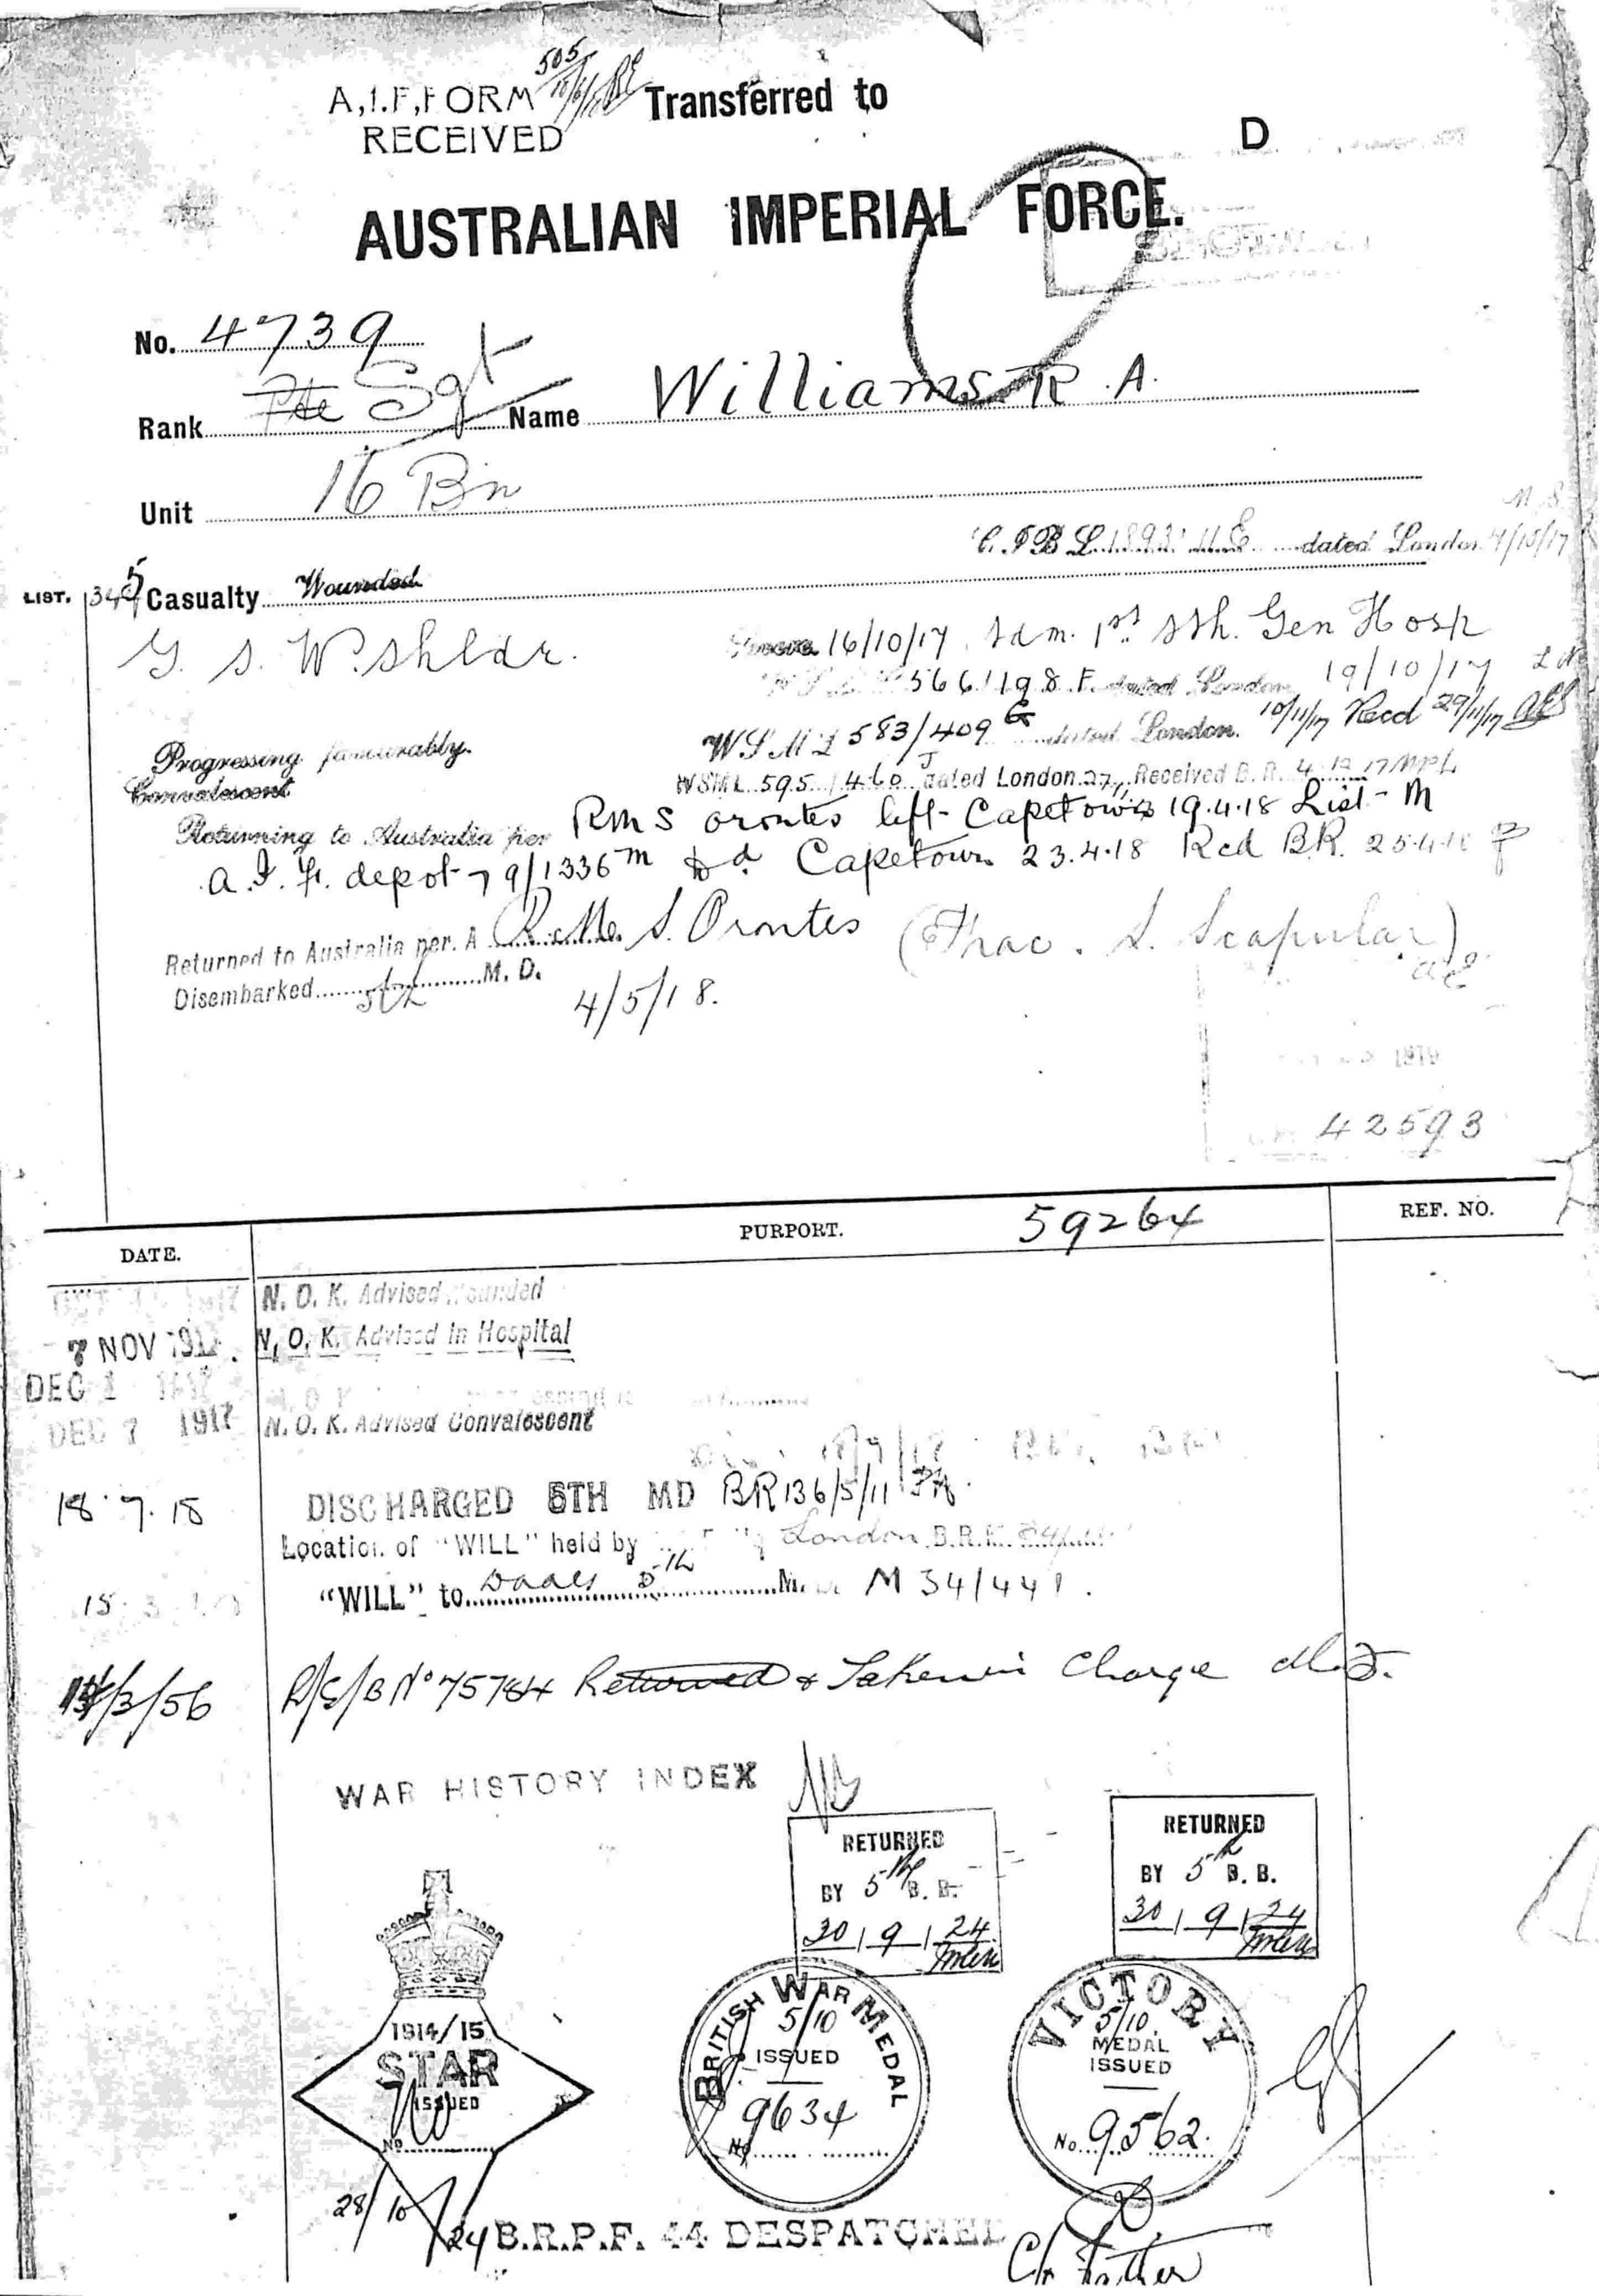 505
A.I.F. FORM Transferred to
RECEIVED
D
AUSTRALIAN IMPERIAL FORCE.
No. 4739
Rank Pte Sgt Name Williams R. A.
Unit 16 Bn
dated London 4/10/17
LIST. 345 Casualty Wounded
G. S. W. Shldr. 16/10/17 Adm. 1st Sth. Gen Hosp
566/198 F. dated London 19/10/17
Progressing favourably. WSML 583/409 G dated London. 10/11/17 Recd 29/11/17
Convalescent WSML 595/460 J dated London 27 Received B. R. 4 12 17
Returning to Australia per RMS Orontes left Capetown 19.4.18 List M
A. I. F. depot 79/1336 m Capetown 23.4.18 Rcd B.R. 25.4.18
Returned to Australia per. A R. M. S. Orontes (Frac. S. Scapular)
Disembarked 5th M. D. 4/5/18.
1919
42593
DATE. PURPORT. 59264 REF. NO.
1917 N. O. K. Advised Wounded
7 NOV 1917. N. O. K. Advised in Hospital
DEC 1 1917 N. O. K.
DEC 7 1917 N. O. K. Advised Convalescent
18.7.18 DISCHARGED 5TH MD BR136/5/11
Location of "WILL" held by London B.R.
"WILL" to 5th M. D. M 34/441.
14/3/56 R/S/B No 75784 Returned & Taken in Charge
WAR HISTORY INDEX
RETURNED
BY 5th B. B.
30/9/24
RETURNED
BY 5th B. B.
30/9/24
1914/15
STAR
ISSUED
No
No
BRITISH WAR MEDAL
5/10
ISSUED
9634
No
VICTORY
5/10
MEDAL
ISSUED
No. 9562.
28/10/24 B.R.P.F. 44 DESPATCHED
Father